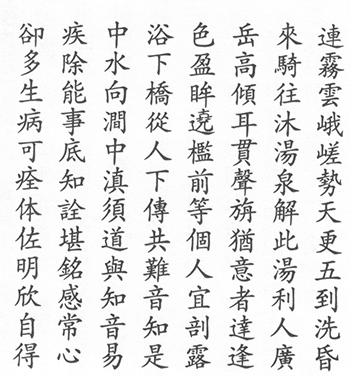 連霧雲峨嵯勢天更五到洗昏
來騎往沐湯泉解此湯利人廣
岳高傾耳貫聲旃猶意者達逢
色盈眸遶檻前等個人宜剖露
浴下橋從人下傳共難音知是
中水向澗中滇須道與知音易
疾除能事底知詮堪銘感常心
卻多生病可痊体佐明欣自得